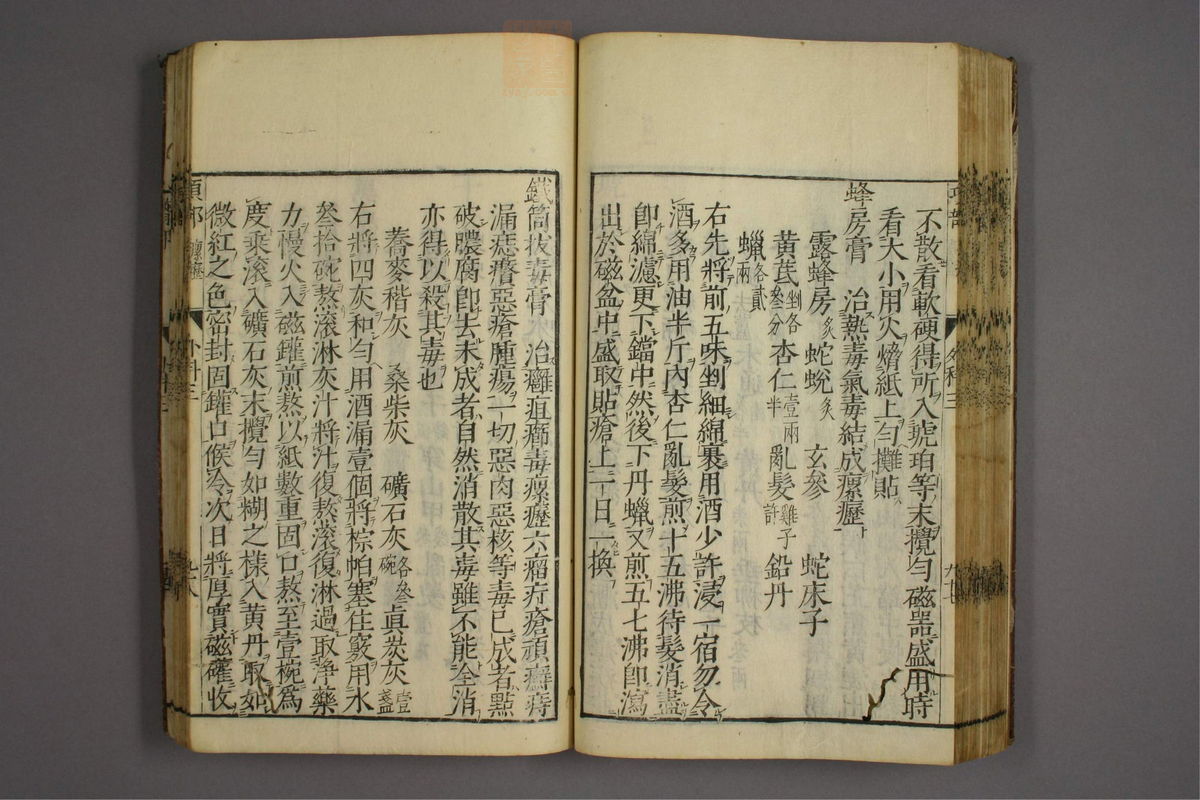 不散看軟硬得所入琥珀等末攪勻磁器盛用時
看大小用火熁紙上勻攤貼
蜂房膏 治熱毒氣毒結成瘰癧
露蜂房炙 蛇蛻炙 玄參 蛇床子
黃芪剉各叄分 杏仁壹兩半 亂髮雞子許 鉛丹
蠟各貳兩
右先將前五味剉細綿裹用酒少許浸一宿勿令
酒多用油半斤內杏仁亂髮煎十五沸待髮消盡
卽綿濾更下鐺中然後下丹蠟又煎五七沸卽瀉
出於磁盆中盛取貼瘡上一日一換
鐵筒拔毒膏 治癰疽癤毒瘰癧六瘤疔瘡頑癬痔
漏痣靨惡瘡腫瘍一切惡肉惡核等毒已成者點
破膿腐卽去未成者自然消散其毒雖不能全消
亦得以殺其毒也
蕎麥稭灰 桑柴灰 礦石灰各叄碗 眞炭灰壹盞
右將四灰和勻用酒漏壹個將棕帕塞住竅用水
叄拾碗熬滾淋灰汁將汁復熬滾復淋過取淨藥
力慢火入磁鑵煎熬以紙數重固口熬至壹椀爲
度乘滾入礦石灰末攪勻如糊之樣入黃丹取如
微紅之色密封固鑵口候冷次日將厚實磁鑵收
項部 瘰癧 外科三 九八